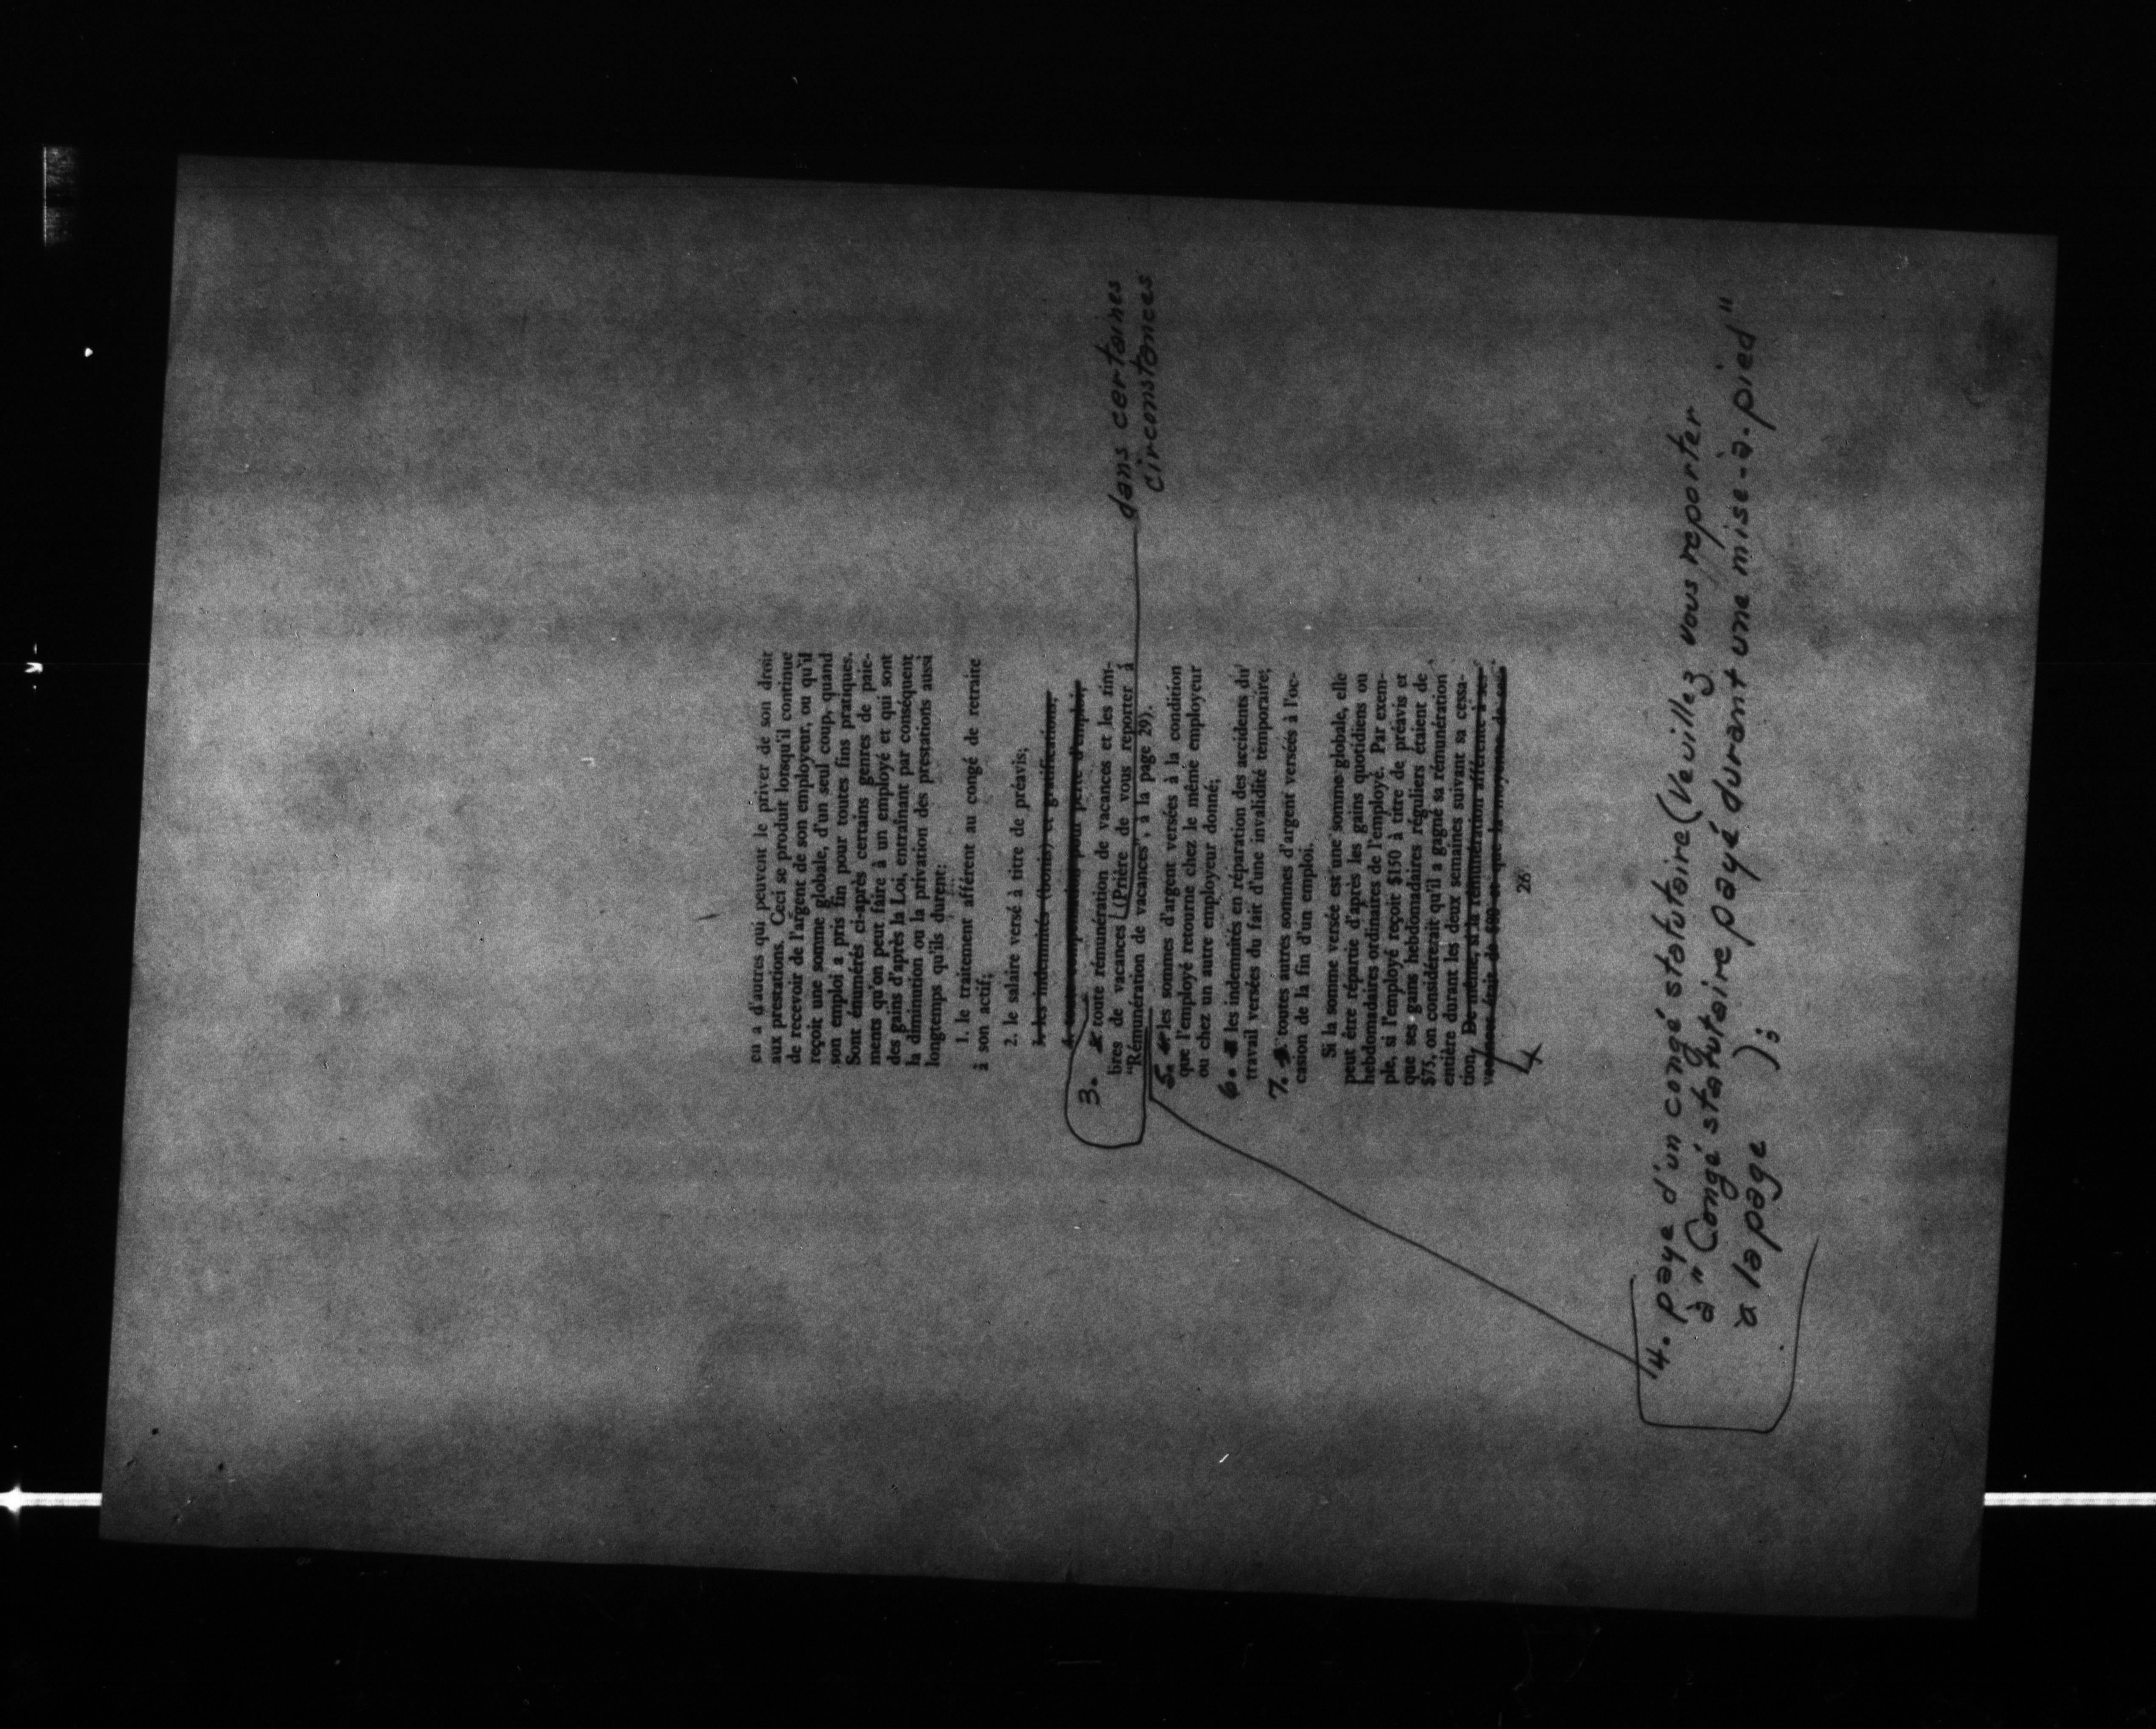 en a d'autres qui peuvent le priver de son droit
aux prestations. Ceci se produit lorsqu'il continue
de recevoir de l'argent de son employeur, ou qu'il
reçoit une somme globale, d'un seul coup, quand
son emploi a pris fin pour toutes fins pratiques.
Sont énumérés ci-après certains genres de paie-
ments qu'on peut faire à un employé et qui sont
des gains d'après la Loi, entraînant par conséquent
la diminution ou la privation des prestations aussi
longtemps qu'ils durent:
1. le traitement afférent au congé de retraite
à son actif;
2. le salaire versé à titre de préavis;
3. les indemnités (bonis) et gratifications;
pour perte d'emploi;
3. toute rémunération de vacances et les tim-
bres de vacances (Prière de vous reporter à
dans certaines
circonstances
"Rémunération de vacances", à la page 29).
5. les sommes d'argent versées à la condition
que l'employé retourne chez le même employeur
ou chez un autre employeur donné;
6. les indemnités en réparation des accidents du
travail versées du fait d'une invalidité temporaire;
7. toutes autres sommes d'argent versées à l'oc-
casion de la fin d'un emploi.
Si la somme versée est une somme globale, elle
peut être répartie d'après les gains quotidiens ou
hebdomadaires ordinaires de l'employé. Par exem-
ple, si l'employé reçoit $150 à titre de préavis et
que ses gains hebdomadaires réguliers étaient de
$75, on considérerait qu'il a gagné sa rémunération
entière durant les deux semaines suivant sa cessa-
tion. De même, si la rémunération afférente à ses
vacances était de $80 et que la moyenne de ses
26
4. paye d'un congé statutaire (Veuillez vous reporter
à "Congé statutaire payé durant une mise-à-pied"
à la page );